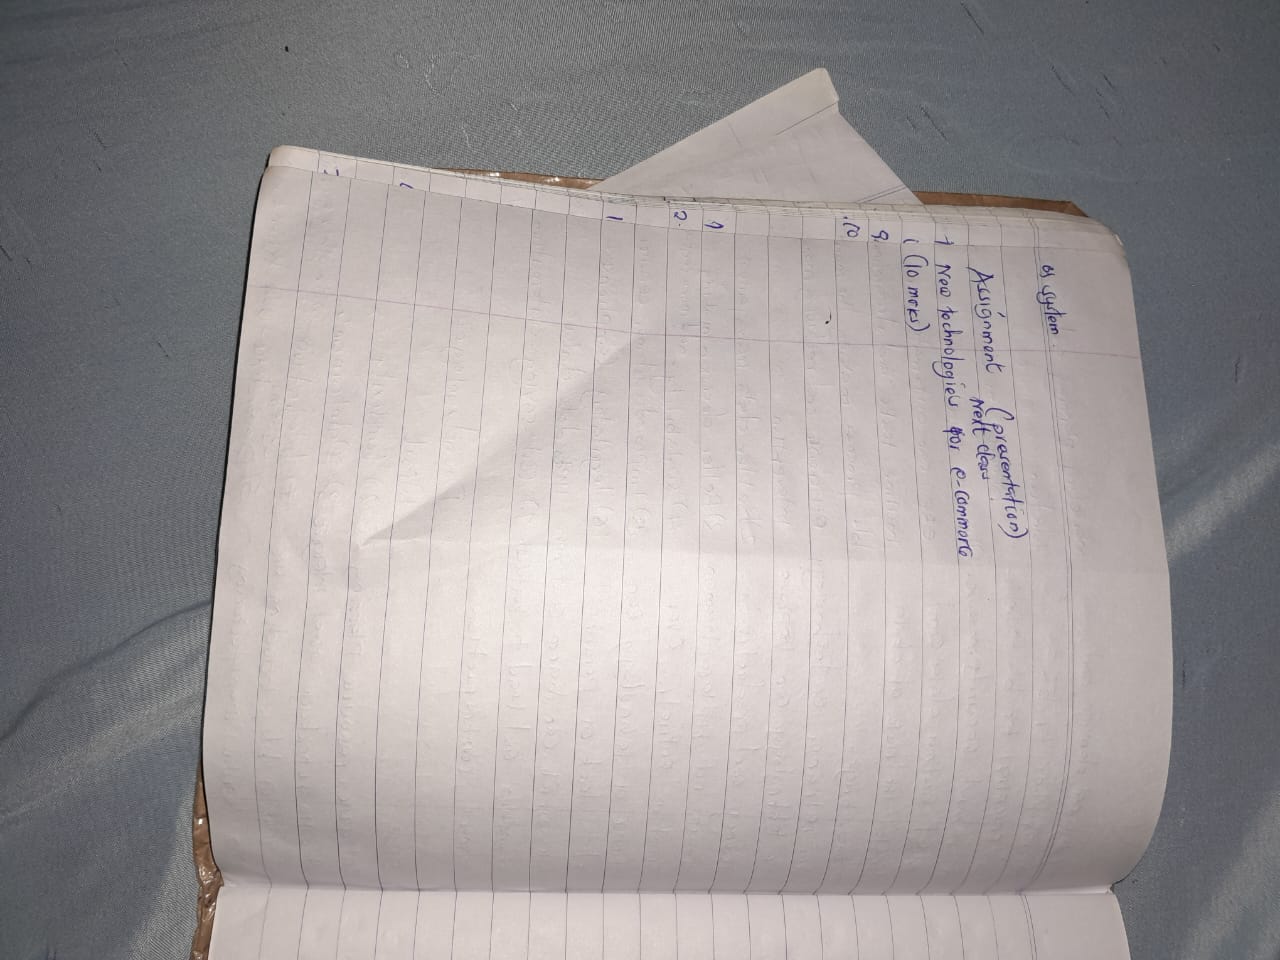 os system.
Assignment (presentation)
Next class
+ New technologies for e-commerce
(10 mrks)
9.
10
1
2.
1